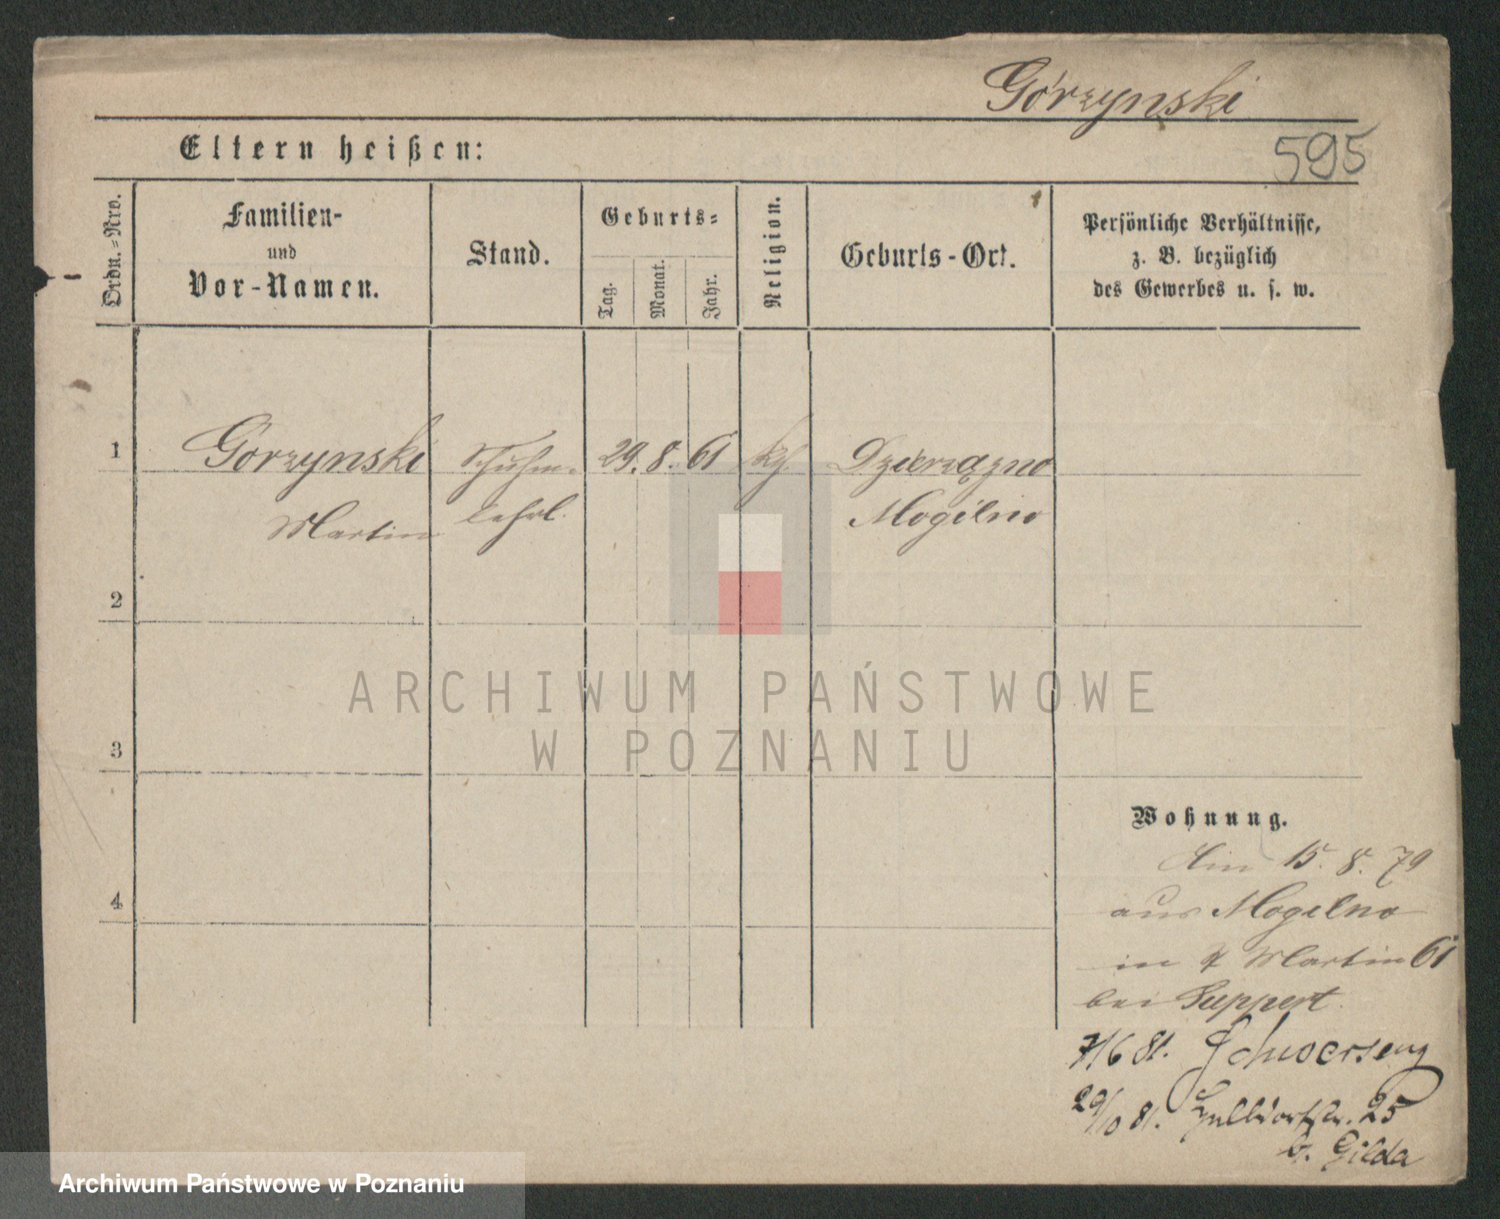 Górzynski
595
Eltern heißen:
Ordn.-Nro.
Familien-
und
Vor-Namen.
Stand.
Geburts-
Tag.
Monat.
Jahr.
Religion.
Geburts-Ort.
Persönliche Verhältnisse,
z. B. bezüglich
des Gewerbes u. s. w.
1 Górzynski Schuhm. 29. 8. 61 kth. Dzierzązno
Martin lehrl. Mogilno
2
3
4
ARCHIWUM PAŃSTWOWE
W POZNANIU
Wohnung.
15. 8. 79
aus Mogilno
in St Martin 61
bei Suppert
7/6 81. Schwersenz
29/10 81. 25
b. Gilda
Archiwum Państwowe w Poznaniu